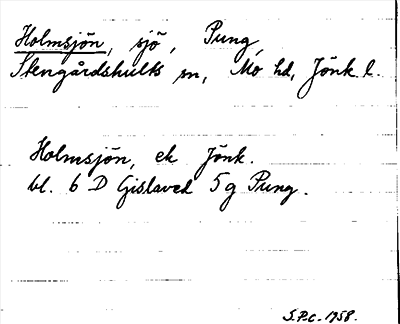 Holmsjön, sjö, Pung,
Stengårdshults sn, Mo hd, Jönk. l.
Holmsjön, ek Jönk.
bl. 6 D Gislaved 5g Pung.
S.P.C. 1958.